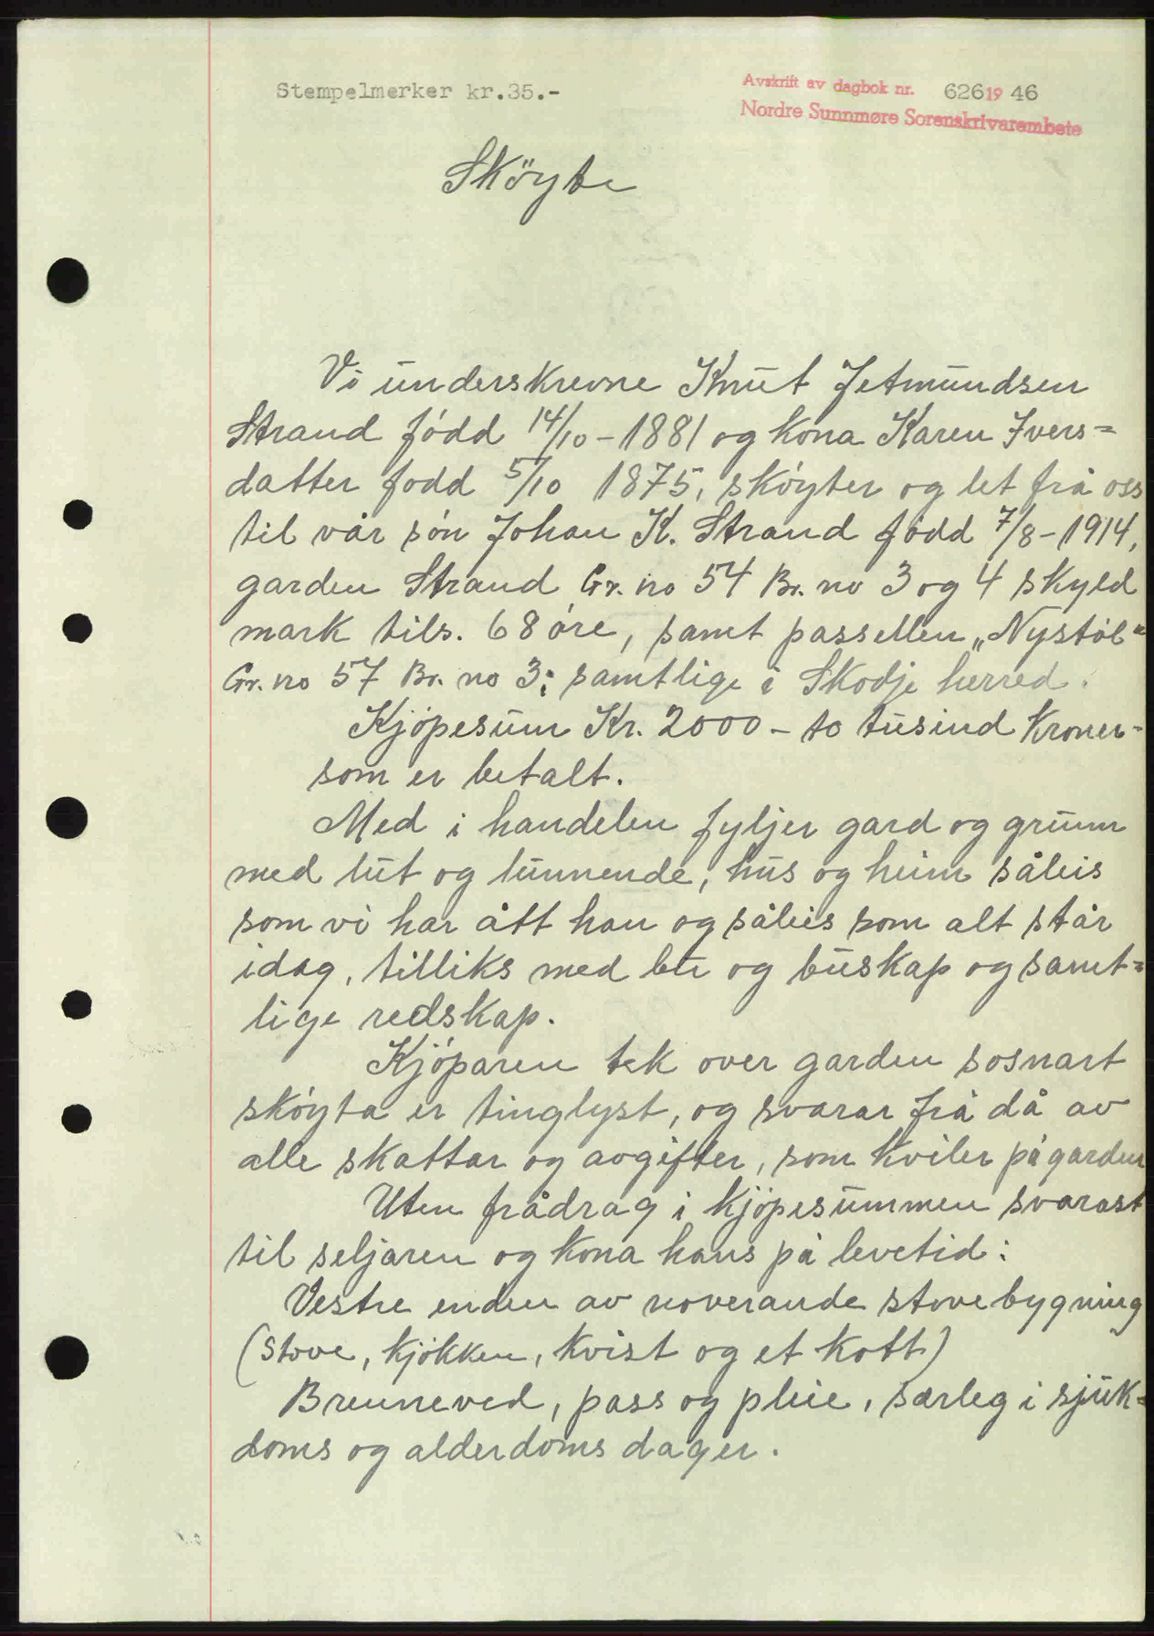 Stempelmerker kr.35.-
Avskrift av dagbok nr. 626 1946
Nordre Sunnmøre Sorenskrivarembete
Sköyte
Vi underskrevne Knut Jetmundsen
Strand född 14/10-1881 og kona Karen Ivers=
datter fodd 5/10 1875, sköyter og let frå oss
til vår sön Johan K. Strand född 7/8-1914,
garden Strand Gr. no 54 Br. no 3 og 4 skyld
mark tils. 68 öre, samt passellen „Nystöl"
Gr. no 57 Br. no 3; samtlige i Skodje herred.
Kjöpesum Kr. 2000 - to tusind Kroner-
som er betalt.
Med i handelen fyljer gard og grunn
med lut og lunnende, hus og heim såleis
som vi har ått han og såleis som alt står
idag, tilliks med bu og buskap og samt=
lige redskap.
Kjöparen tek over garden sosnart
sköyta er tinglyst, og svarar frå då av
alle skattar og avgifter, som kviler på garden
Uten frådrag i kjöpesummen svarast
til seljaren og kona hans på levetid:
Vestre enden av noverande stovebygning
(Stove, kjökken, kvist og et kott)
Brenneved, pass og pleie, særleg i sjuk=
doms og alderdoms dager.